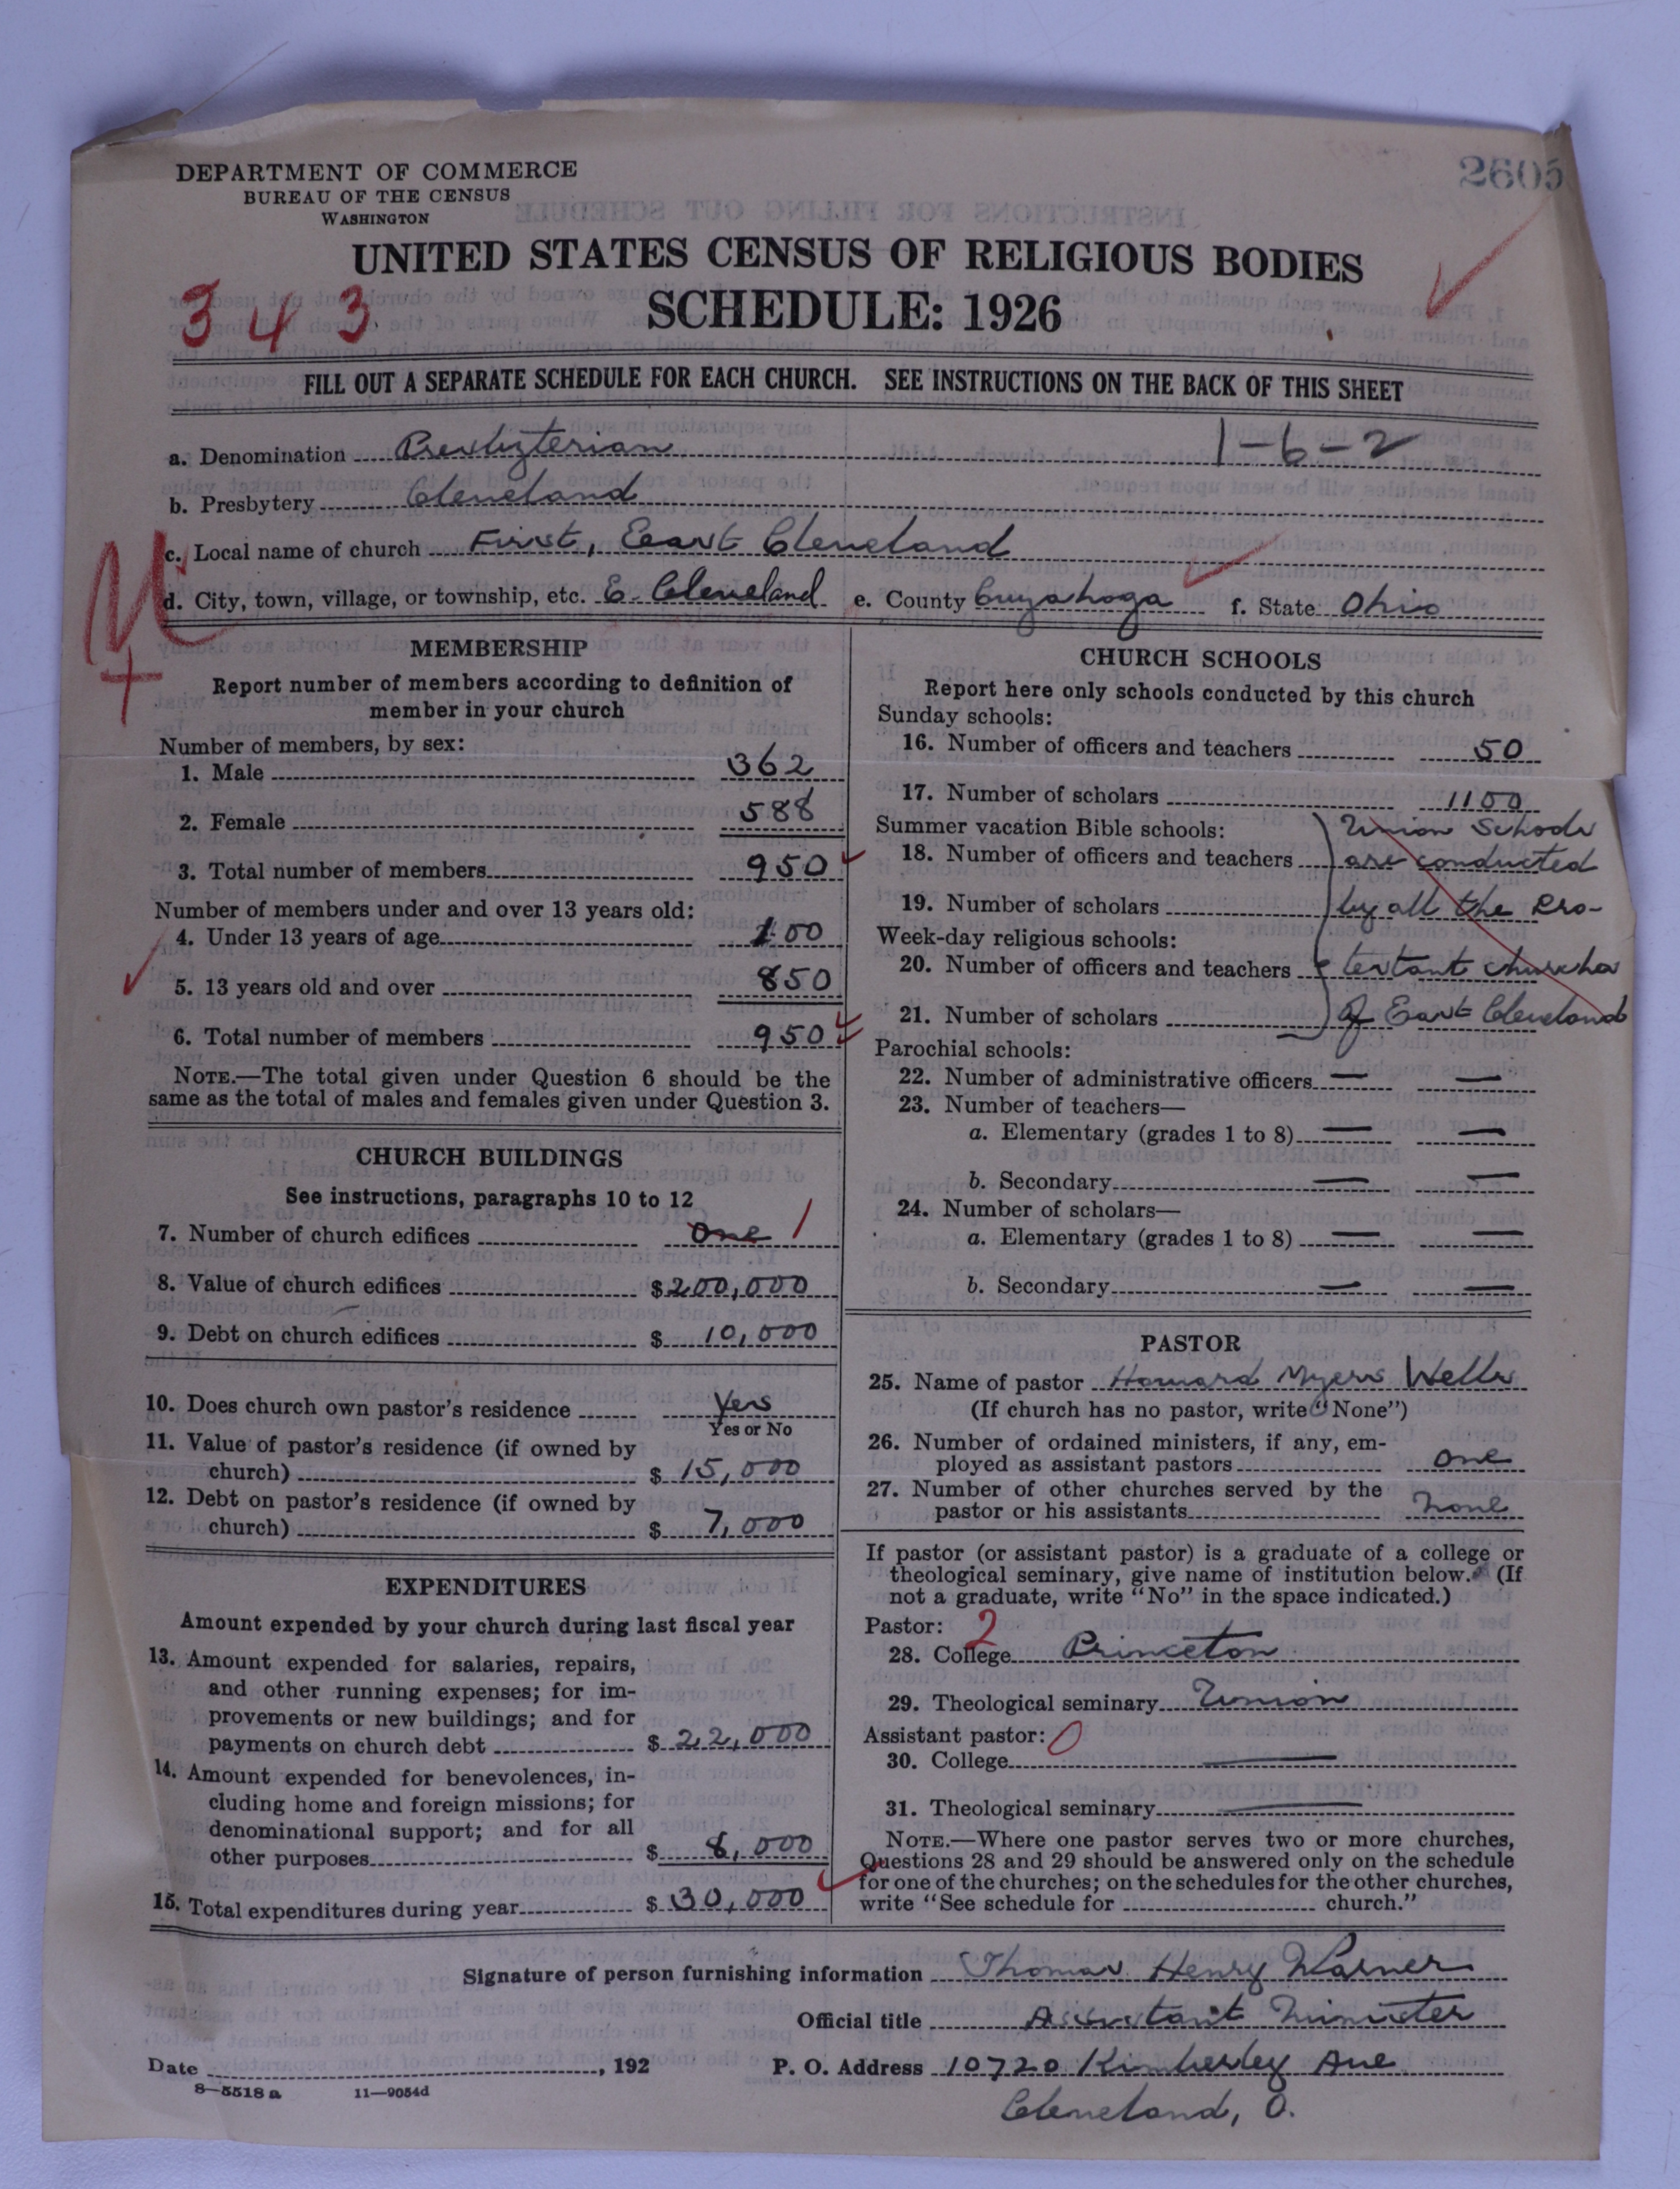 DEPARTMENT OF COMMERCE
BUREAU OF THE CENSUS
WASHINGTON
2605
UNITED STATES CENSUS OF RELIGIOUS BODIES
SCHEDULE: 1926
343
FILL OUT A SEPARATE SCHEDULE FOR EACH CHURCH. SEE INSTRUCTIONS ON THE BACK OF THIS SHEET
a. Denomination Presbyterian 1-6-2
b. Presbytery Cleveland
c. Local name of church First, East Cleveland
d. City, town, village, or township, etc. E. Cleveland e. County Cuyahoga f. State Ohio
MEMBERSHIP
Report number of members according to definition of
member in your church
Number of members, by sex:
1. Male 362
2. Female 588
3. Total number of members 950
Number of members under and over 13 years old:
4. Under 13 years of age 100
5. 13 years old and over 850
6. Total number of members 950
NOTE.—The total given under Question 6 should be the
same as the total of males and females given under Question 3.
CHURCH BUILDINGS
See instructions, paragraphs 10 to 12
7. Number of church edifices One 1
8. Value of church edifices $200,000
9. Debt on church edifices $ 10,000
10. Does church own pastor's residence Yes
Yes or No
11. Value of pastor's residence (if owned by
church) $ 15,000
12. Debt on pastor's residence (if owned by
church) $ 7,000
EXPENDITURES
Amount expended by your church during last fiscal year
13. Amount expended for salaries, repairs,
and other running expenses; for im-
provements or new buildings; and for
payments on church debt $ 22,000
14. Amount expended for benevolences, in-
cluding home and foreign missions; for
denominational support; and for all
other purposes $ 8,000
15. Total expenditures during year $ 30,000
CHURCH SCHOOLS
Report here only schools conducted by this church
Sunday schools:
16. Number of officers and teachers 50
17. Number of scholars 1100
Summer vacation Bible schools: Union Schools
18. Number of officers and teachers are conducted
19. Number of scholars by all the Pro-
Week-day religious schools:
20. Number of officers and teachers testant churches
21. Number of scholars of East Cleveland
Parochial schools:
22. Number of administrative officers — —
23. Number of teachers—
a. Elementary (grades 1 to 8) — —
b. Secondary — —
24. Number of scholars—
a. Elementary (grades 1 to 8) — —
b. Secondary — —
PASTOR
25. Name of pastor Howard Myers Wells
(If church has no pastor, write "None")
26. Number of ordained ministers, if any, em-
ployed as assistant pastors One
27. Number of other churches served by the
pastor or his assistants None
If pastor (or assistant pastor) is a graduate of a college or
theological seminary, give name of institution below. (If
not a graduate, write "No" in the space indicated.)
Pastor: 2
28. College Princeton
29. Theological seminary Union
Assistant pastor: 0
30. College —
31. Theological seminary —
NOTE.—Where one pastor serves two or more churches,
Questions 28 and 29 should be answered only on the schedule
for one of the churches; on the schedules for the other churches,
write "See schedule for church."
Signature of person furnishing information Thomas Henry Warner
Official title Assistant Minister
Date , 192 P. O. Address 10720 Kimberley Ave
8-5518 a 11-9054d
Cleveland, O.